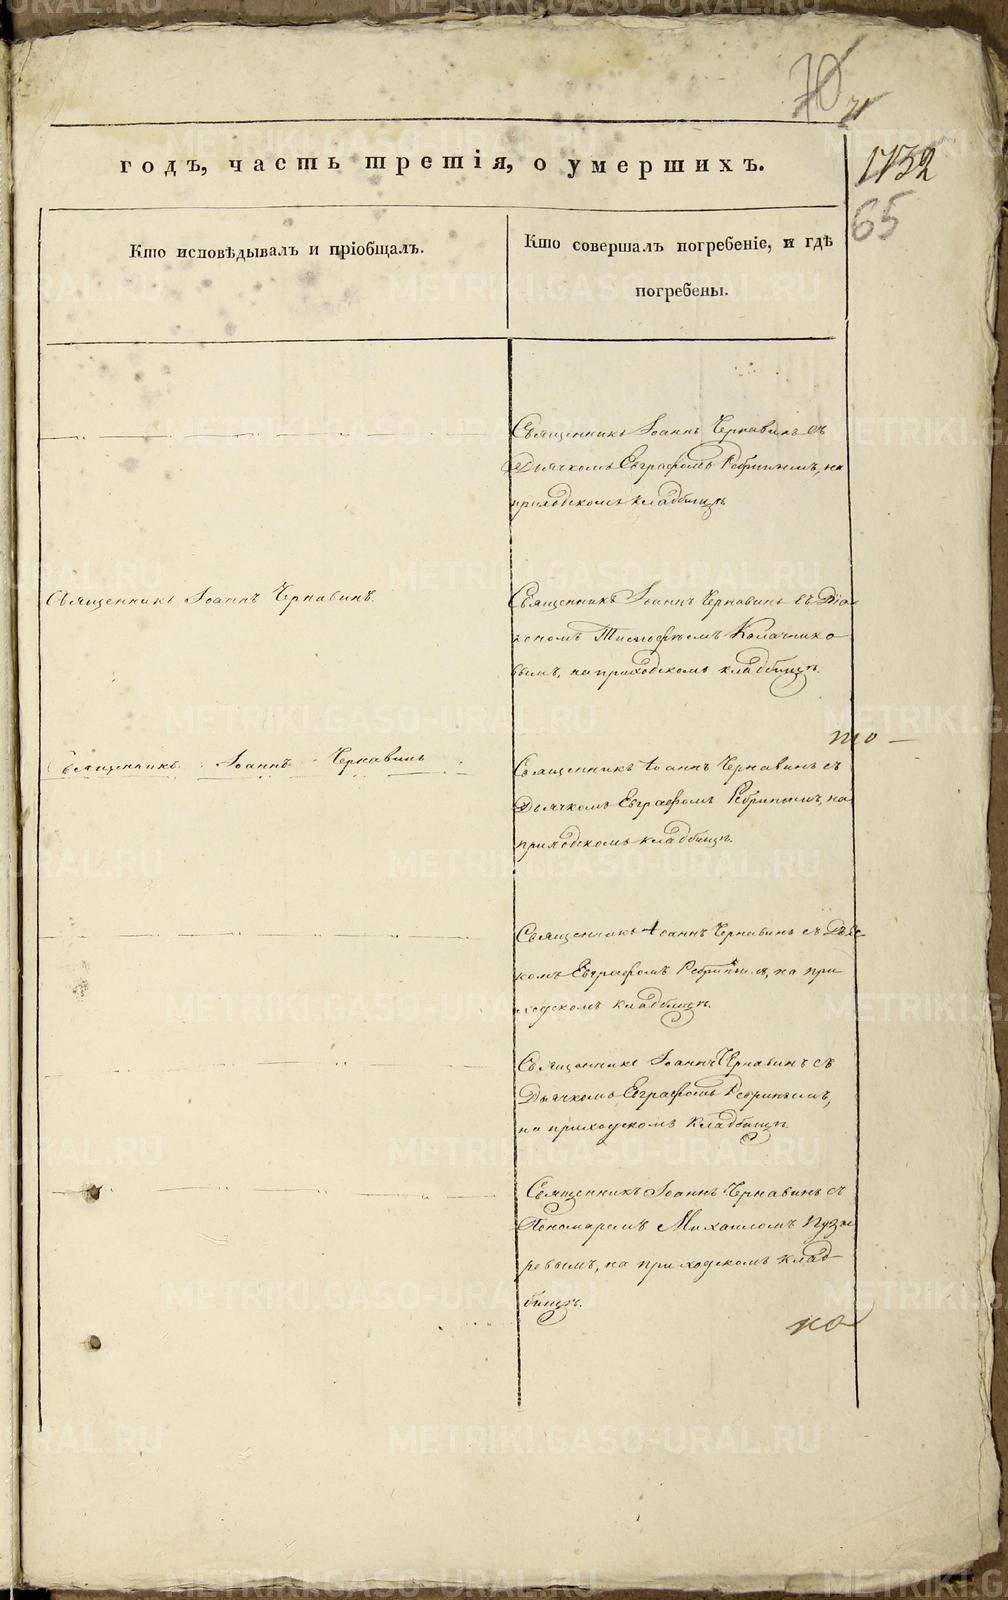 70
71
годъ, часть третія, о умершихъ.
1132
65
Кто исповѣдывалъ и пріобщалъ.
Кто совершалъ погребеніе, и гдѣ
погребены.
Священникъ Іоаннъ Чернавинъ съ
Дьячкомъ Евграфомъ на
приходскомъ кладбищѣ
Священникъ Іоаннъ Чернавинъ.
Священникъ Іоаннъ Чернавинъ съ Діа-
кономъ Тимофѣемъ Колачнико-
вымъ, на приходскомъ кладбищѣ.
то
Священникъ Іоаннъ Чернавинъ
Священникъ Іоаннъ Чернавинъ съ
Дьячкомъ Евграфомъ на
приходскомъ кладбищѣ.
Священникъ Іоаннъ Чернавинъ съ Дьяч-
комъ Евграфомъ на при-
ходскомъ кладбищѣ.
Священникъ Іоаннъ Чернавинъ съ
Дьячкомъ Евграфомъ
на приходскомъ кладбищѣ.
Священникъ Іоаннъ Чернавинъ съ
Пономаремъ Михаиломъ Пузы-
ревымъ, на приходскомъ клад-
бищѣ.
но
METRIKI.GASO-URAL.RU